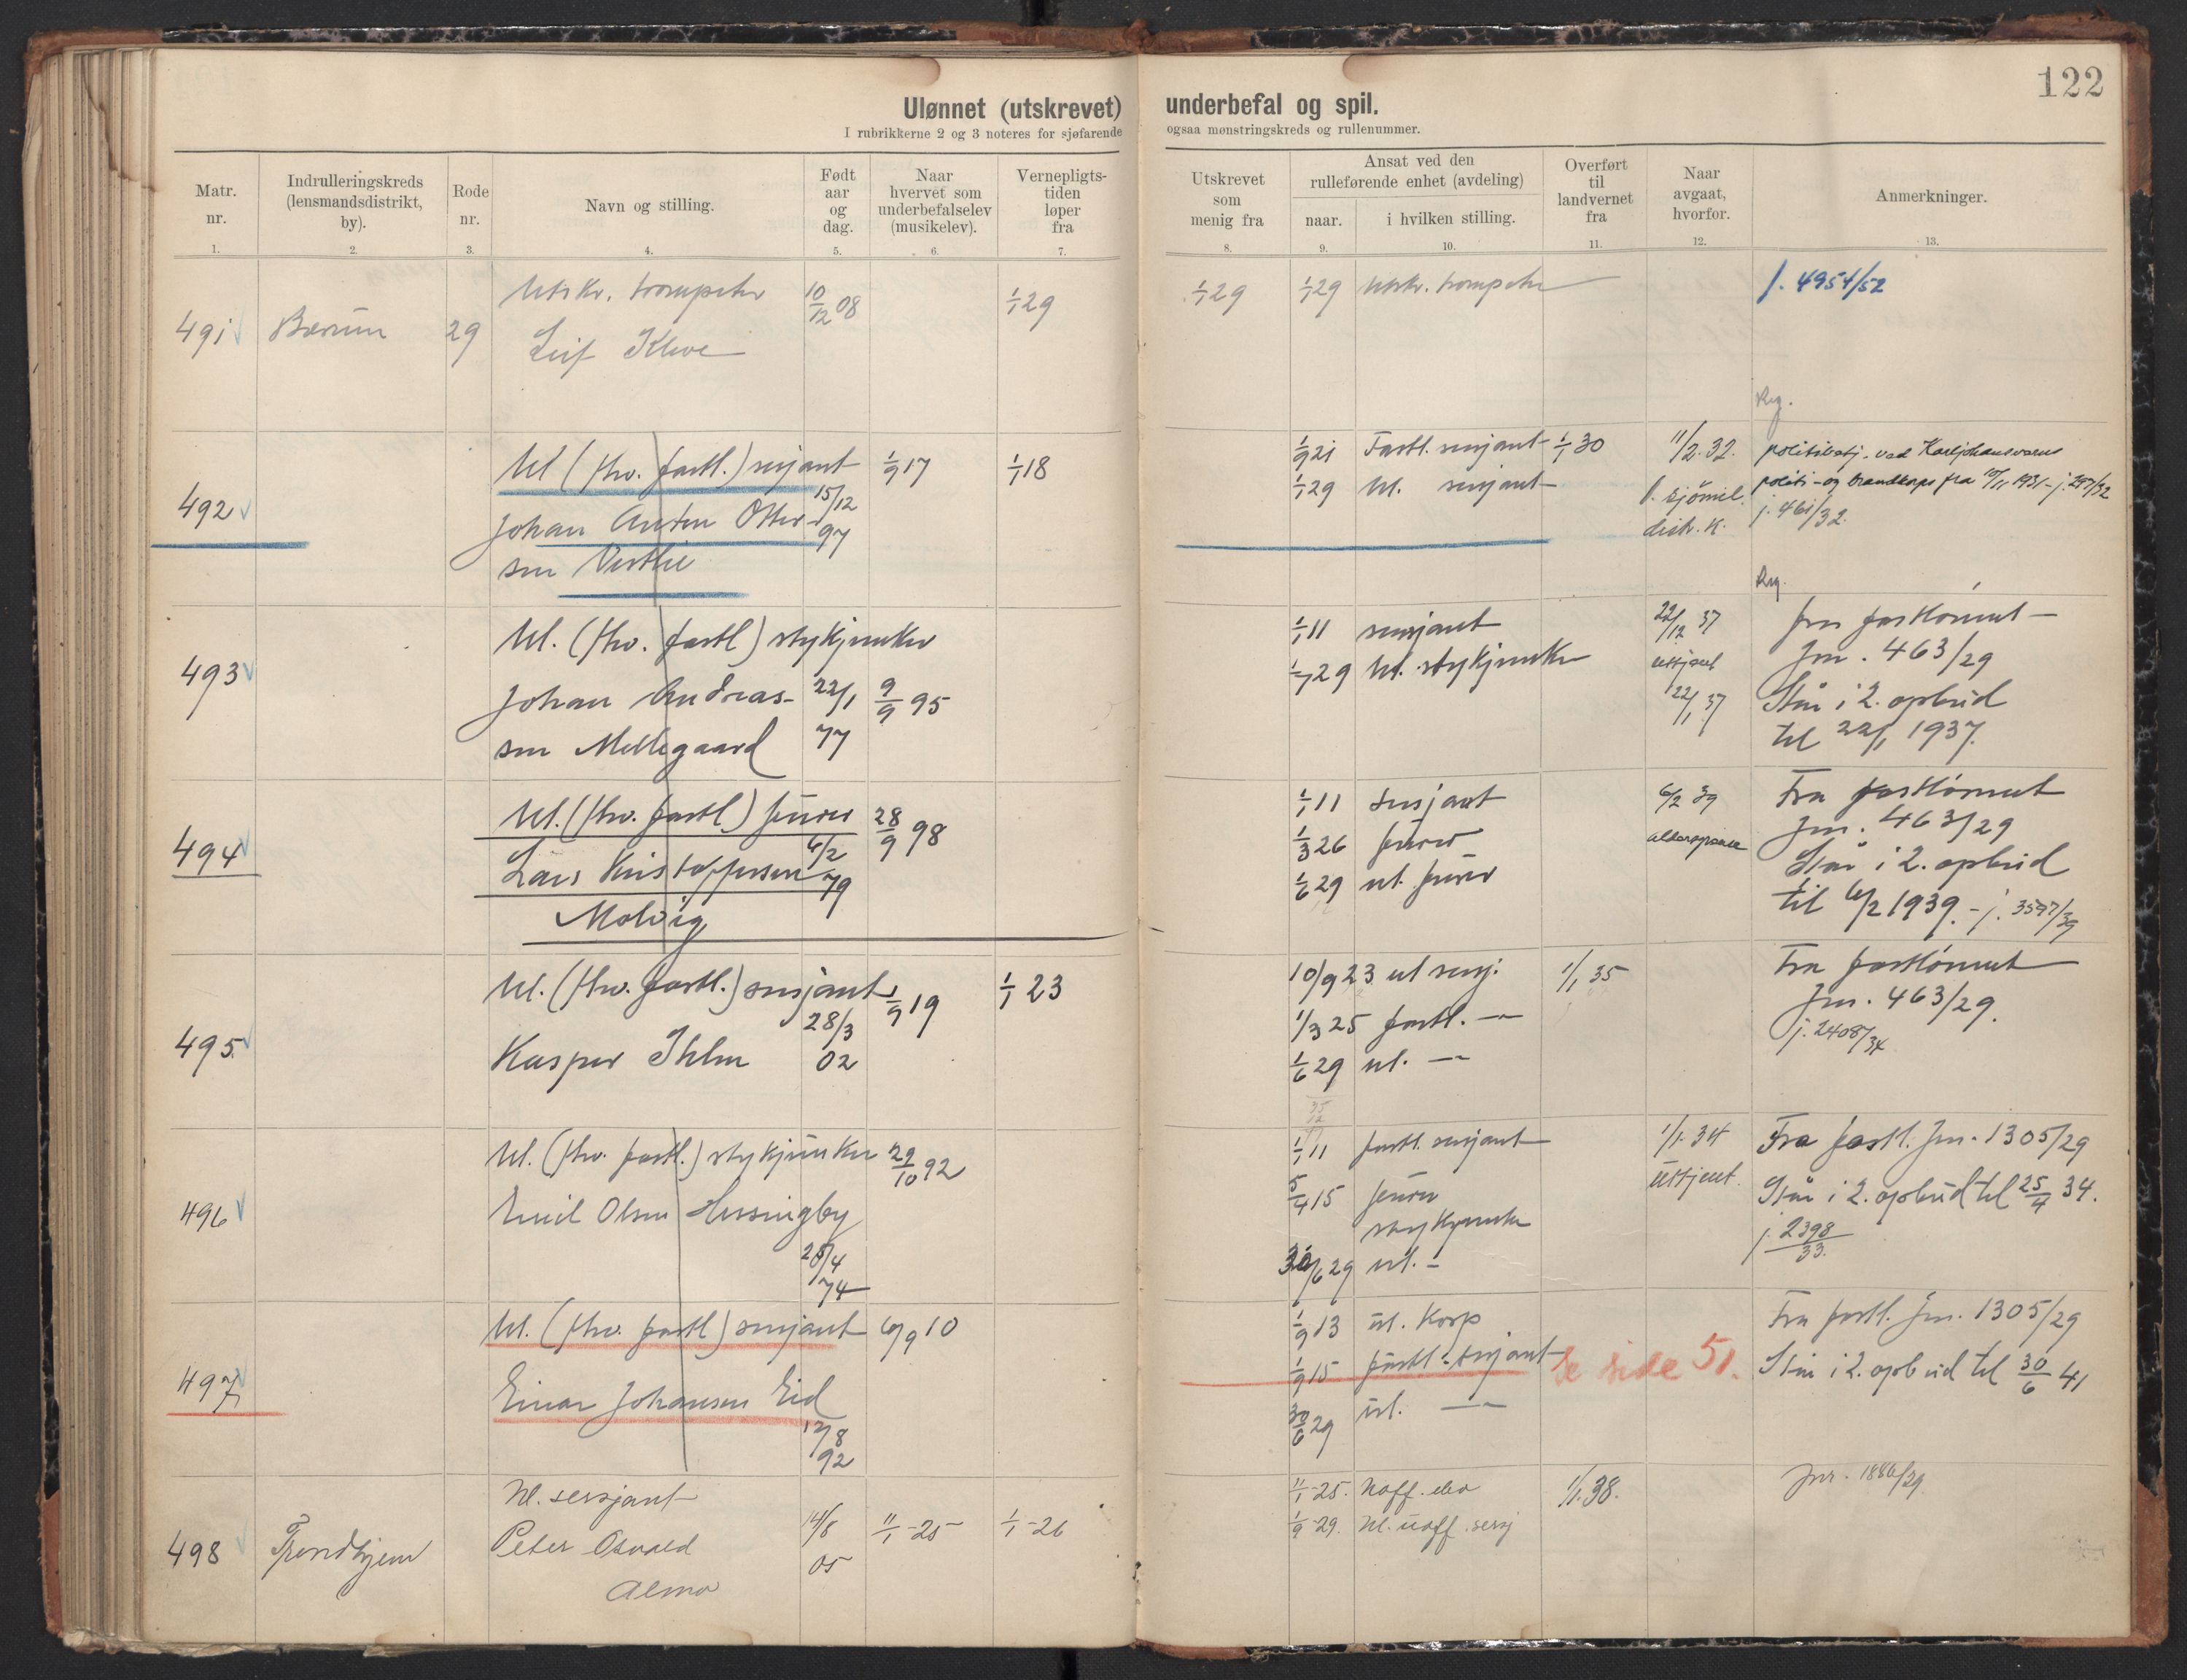 122
Ulønnet (utskrevet) underbefal og spil.
I rubrikkerne 2 og 3 noteres for sjøfarende ogsaa mønstringskreds og rullenummer.
Matr. nr.
Indrulleringskreds (lensmandsdistrikt, by).
Rode nr.
Navn og stilling.
Født aar og dag.
Naar hvervet som underbefalselev (musikelev).
Vernepligts-tiden løper fra
Utskrevet som menig fra
Ansat ved den rulleførende enhet (avdeling)
naar.
i hvilken stilling.
Overført til landvernet fra
Naar avgaat, hvorfor.
Anmerkninger.
1. 2. 3. 4. 5. 6. 7. 8. 9. 10. 11. 12. 13.
Utskr. trompeter 10/12 08 1/1 29 1/1 29 1/1 29 Utskr. trompeter j. 4954/52
491 Bærum 29
Leif Kleve
Reg.
Ul (fhv. fastl.) sersjant 1/9 17 1/1 18 1/9 21 Fastl. sersjant 1/1 30 11/2 32. politibetj. ved Karljohansvern
492 15/12 97 1/1 29 Ul. sersjant t. sjømil. distr. K. politi- og brandkorps fra 10/11 1931 - j. 257/32
Johan Anton Otter- j. 461/32.
sen Vestlie
Reg.
Ul. (fhv. fastl) stykjunker 1/1 11 sersjant 22/12 37 fra fastlönnet
493 1/7 29 Ul. stykjunker uttjent Jnr. 463/29
Johan Andreas- 22/1 77 9/9 95 22/1 37 Står i 2. opbud
sen Mellegaard til 22/1 1937.
Ul. (fhv. fastl) furer 28/9 98 1/1 11 sersjant 6/2 39 Fra fastlönnet
494 6/2 79 1/3 26 furer Jnr. 463/29
Lars Kristoffersen 1/6 29 ul. furer Står i 2. opbud
Molvig til 6/2 1939. - j. 3597/39
Ul. (fhv. fastl.) sersjant 1/9 19 1/1 23 10/9 23 ul sersj. 1/1 35 Fra fastlönnet
495 28/3 02 1/3 25 fastl. —"— Jnr. 463/29.
Kasper Ihlen 1/6 29 ul. —"— j. 2408/34
Ul. (fhv. fastl.) stykjunker 29/10 92 1/1 11 fastl. sersjant 1/1 34 Fra fastl. Jnr. 1305/29
496 5/4 15 furer uttjent. Står i 2. opbud til 25/4 34.
Emil Olsen Hessingby stykjunker j. 2398/33.
25/4 74 30/6 29 ul. -
Ul. (fhv. fastl) sersjant 6/9 10 1/9 13 ul. Korp Fra fastl. Jnr. 1305/29
497 1/9 15 fastl. sersjant Se side 51. Står i 2. opbud til 30/6 41
Einar Johansen Eid 30/6 29 ul. —"—
12/8 92
Ul. sersjant 11/1-25. 1/1.38. Jnr. 1886/29.
498 Trondhjem Peter Osvald 14/8 05 11/1-25 1/1-26 1/9-29. Ul. uoff. sersj
Almo